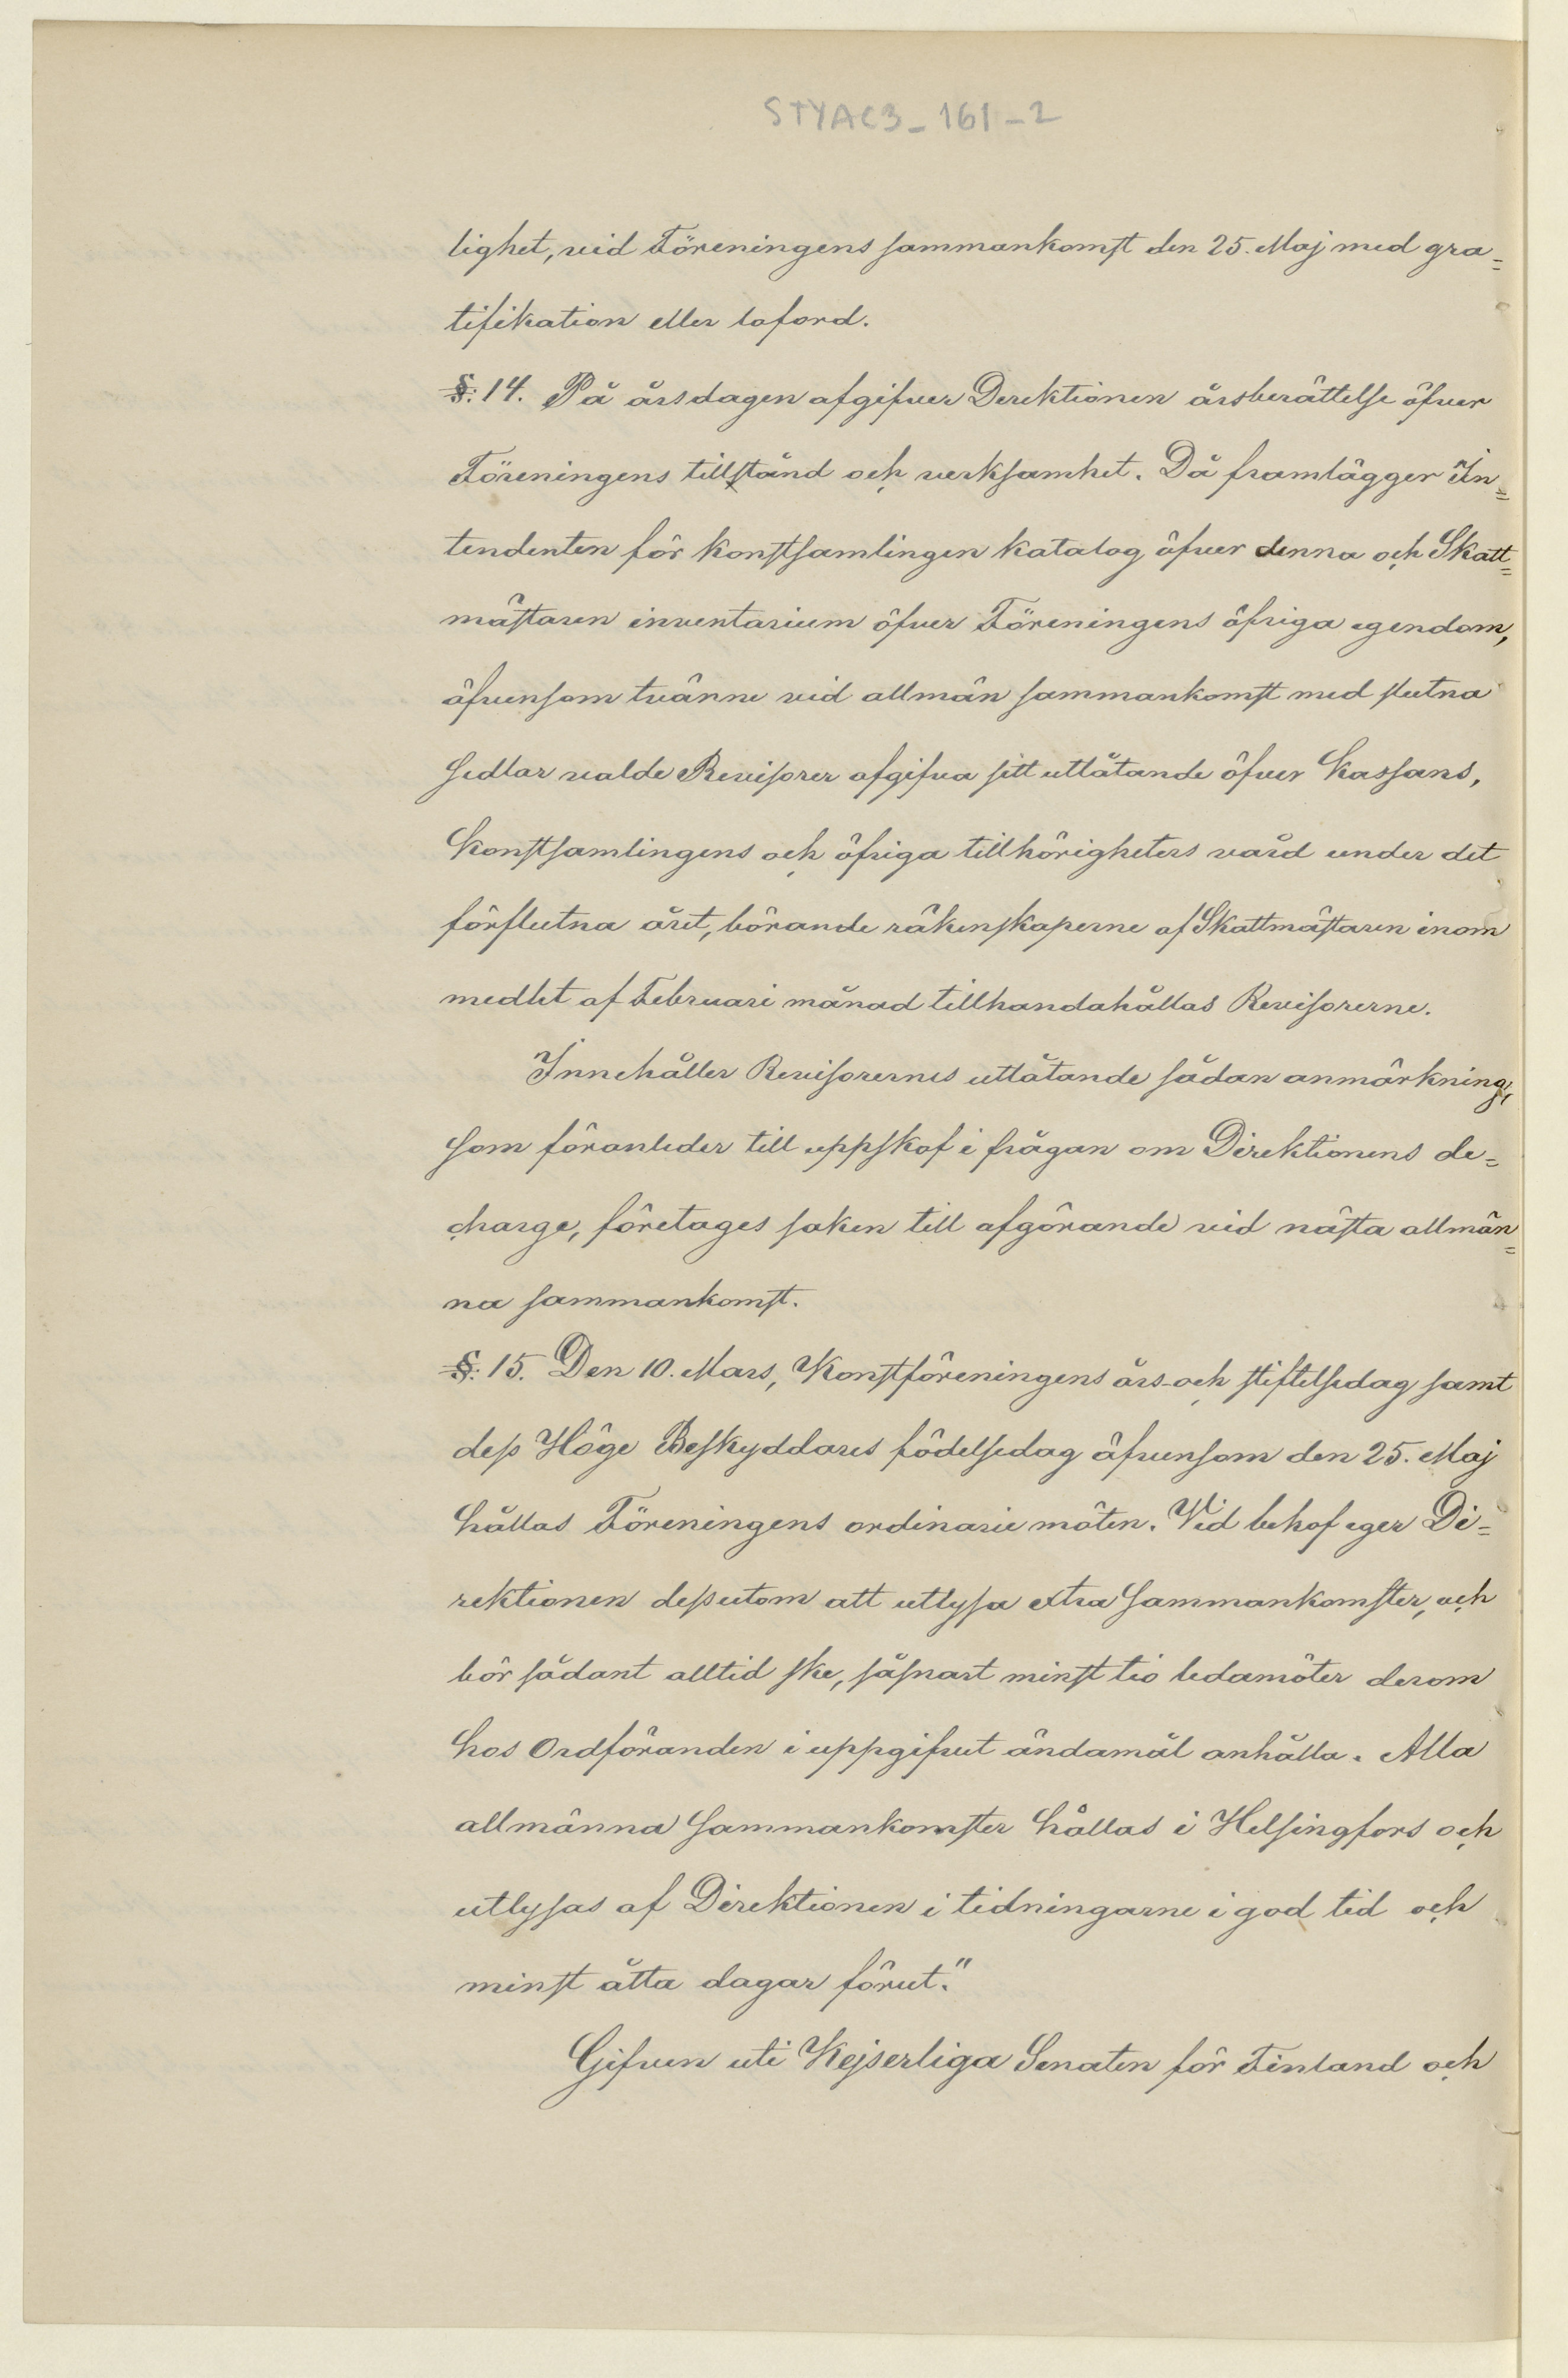 STYAC3_161-2
lighet, vid Föreningens sammankomst den 25. Maj med gra=
tifikation eller loford.
§. 14. På årsdagen afgifver Derektionen årsberättelse öfver
Föreningens tillstånd och verksamhet. Då framlägger In=
tendenten för konstsamlingen katalog öfver denna och Skatt=
mästaren inventarium öfver Föreningens öfriga egendom,
äfvensom tvänne vid allmän sammankomst med slutna
sedlar valde Revisorer afgifva sitt utlåtande öfver kassans,
konstsamlingens och öfriga tillhörigheters vård under det
förflutna året, börande räkenskaperne af Skattmästaren inom
medlet af Februari månad tillhandahållas Revisorerne.
Innehåller Revisorernes utlåtande sådan anmärkning,
som föranleder till uppskof i frågan om Direktionens de=
charge, företages saken till afgörande vid nästa allmän=
na sammankomst.
§. 15. Den 10. Mars, Konstföreningens års- och stiftelsedag samt
dess Höge Beskyddares födelsedag äfvensom den 25. Maj
hållas Föreningens ordinarie möten. Vid behof eger Di=
rektionen dessutom att utlysa extra sammankomster, och
bör sådant alltid ske, såsnart minst tio ledamöter derom
hos Ordföranden i uppgifvet ändamål anhålla. Alla
allmänna sammankomster hållas i Helsingfors och
utlysas af Direktionen i tidningarne i god tid och
minst åtta dagar förut."
Gifven uti Kejserliga Senaten för Finland och